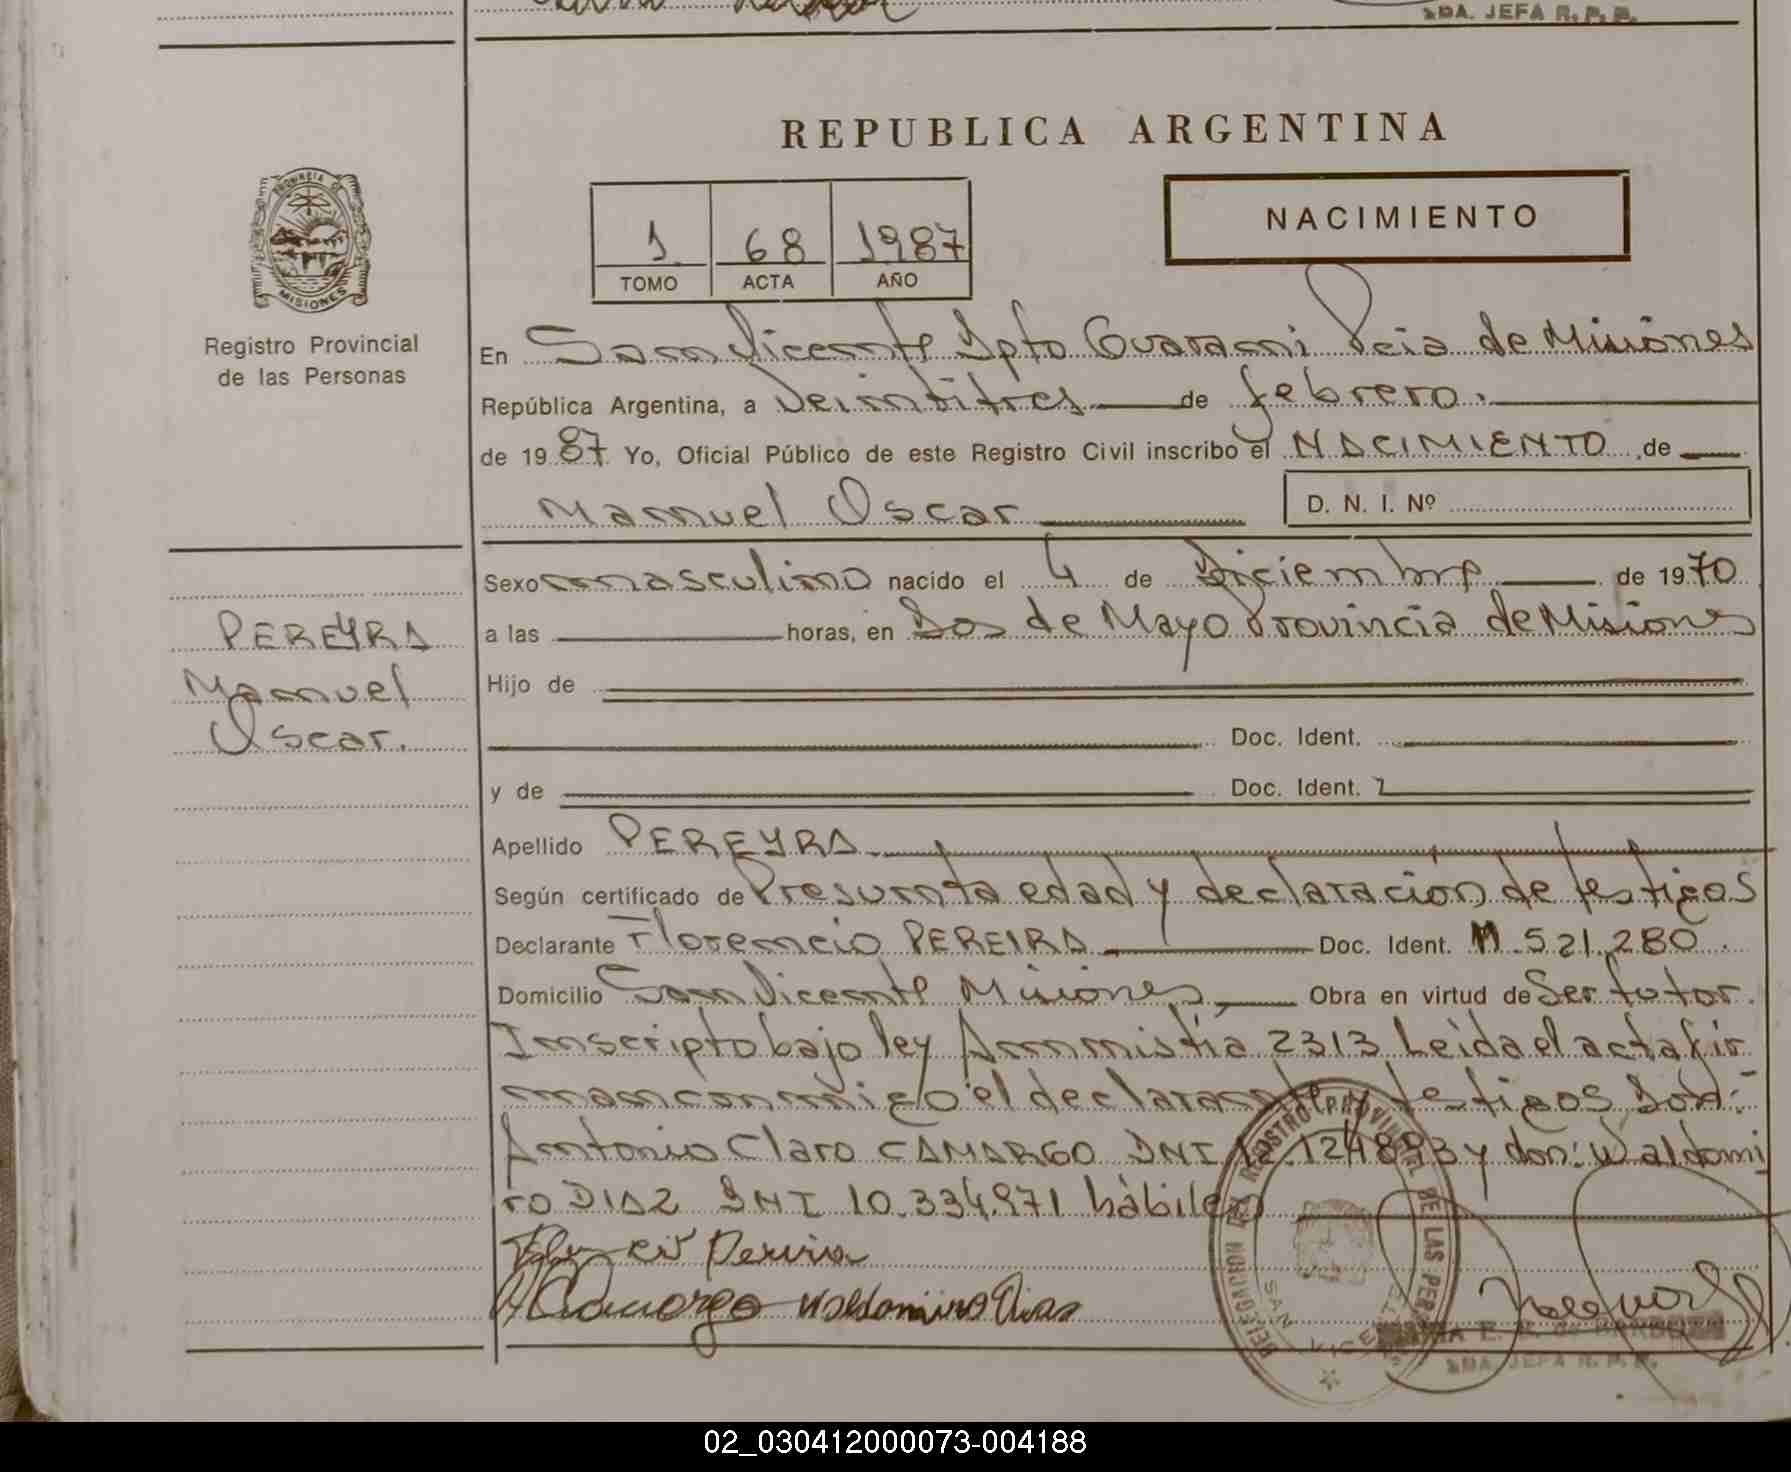 SDA. JEFA R. P. P.
REPUBLICA ARGENTINA
PROVINCIA DE
MISIONES
Registro Provincial
de las Personas
1 68 1987
TOMO ACTA AÑO
NACIMIENTO
En San Vicente Dpto Guarani Pcia de Misiones
República Argentina, a Veintitres de febrero.
de 1987 Yo, Oficial Público de este Registro Civil inscribo el NACIMIENTO de
Manuel Oscar D. N. I. Nº
Sexo masculino nacido el 4 de Diciembre de 1970
a las horas, en Dos de Mayo Provincia de Misiones
Hijo de
Doc. Ident.
y de Doc. Ident.
PEREYRA
Manuel
Oscar.
Apellido PEREYRA
Según certificado de Presunta edad y declaración de testigos
Declarante Florencio PEREIRA Doc. Ident. M 521.280.
Domicilio San Vicente Misiones, Obra en virtud de Ser tutor.
Inscripto bajo ley Ammistía 2313 Leida el acta fir
man conmigo el declarante y testigos Don:
Antonio Claro CAMARGO DNI 12.124893 y don: Waldomi
ro DIAZ DNI 10.334.971 hábiles
A Camargo Waldomiro Dias
DELEGACION REGISTRO PROVINCIAL DE LAS PER
SAN VICENTE
SDA. JEFA R. P. P.
02_030412000073-004188